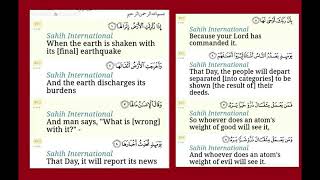 بسم الله الرحمن الرحيم
إِذَا زُلْزِلَتِ الْأَرْضُ زِلْزَالَهَا
Sahih International
When the earth is shaken with
its [final] earthquake
وَأَخْرَجَتِ الْأَرْضُ أَثْقَالَهَا
Sahih International
And the earth discharges its
burdens
وَقَالَ الْإِنسَانُ مَا لَهَا
Sahih International
And man says, "What is [wrong]
with it?" -
يَوْمَئِذٍ تُحَدِّثُ أَخْبَارَهَا
Sahih International
That Day, it will report its news
بِأَنَّ رَبَّكَ أَوْحَىٰ لَهَا
Sahih International
Because your Lord has
commanded it.
يَوْمَئِذٍ يَصْدُرُ النَّاسُ أَشْتَاتًا لِّيُرَوْا أَعْمَالَهُمْ
Sahih International
That Day, the people will depart
separated [into categories] to be
shown [the result of] their
deeds.
فَمَن يَعْمَلْ مِثْقَالَ ذَرَّةٍ خَيْرًا يَرَهُ
Sahih International
So whoever does an atom's
weight of good will see it,
وَمَن يَعْمَلْ مِثْقَالَ ذَرَّةٍ شَرًّا يَرَهُ
Sahih International
And whoever does an atom's
weight of evil will see it.